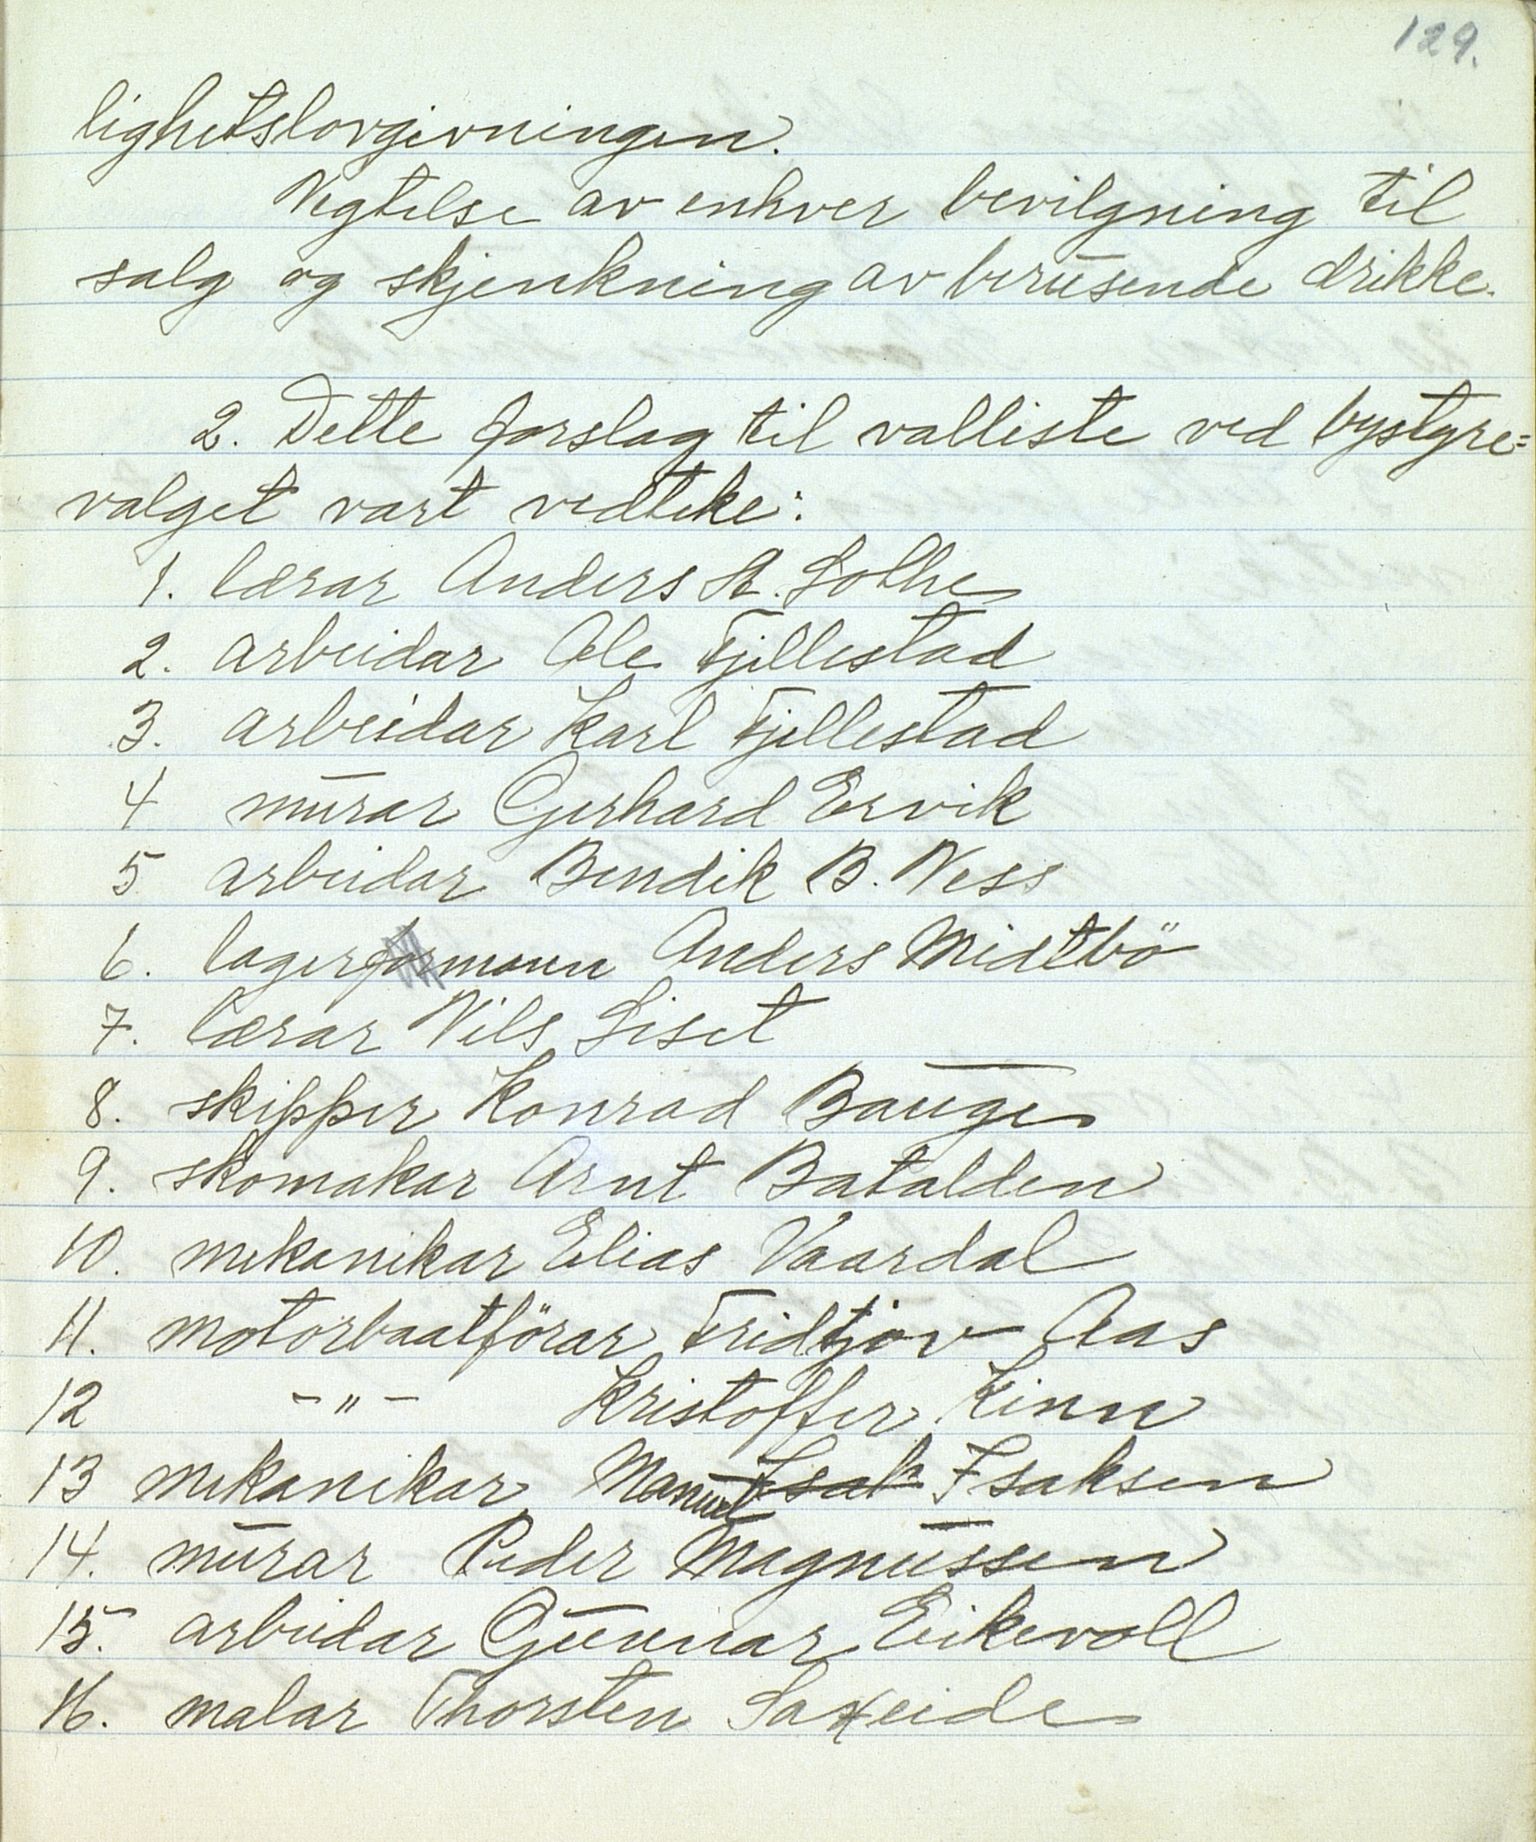 129.
lighetslovgivningen.
Negtelse av enhver bevilgning til
salg og skjenkning av berusende drikke.
2. Dette forslag til valliste ved bystyre=
valget vart vedteke:
1. lærar Anders A. Lothe
2. arbeidar Ole Fjellestad
3. arbeidar Karl Fjellestad
4 murar Gerhard Ervik
5 arbeidar Bendik B. Ness
6. lagerformann Anders Midtbö
7. lærar Nils Liset
8. skipper Konrad Bauge
9. skomakar Arnt Batalden
10. mekanikar Elias Vaardal
11. motorbaatförar Fridtjov Aas
12 -"- Kristoffer Kinn
13 mekanikar Manuel Isak Isaksen
14. murar Peder Magnussen
15. arbeidar Gunnar Eikevoll
16. malar Thorsten Saxeide